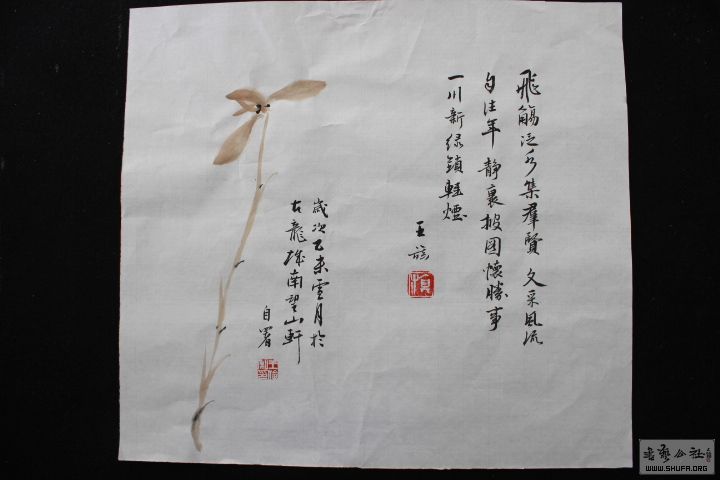 飛觴泛水集羣賢 文采風流
自往年 靜裏披圖懷勝事
一川新绿鎖輕煙
王
歲次乙未雪月於
古龍城南望山軒
自署
书艺公社
WWW.SHUFA.ORG